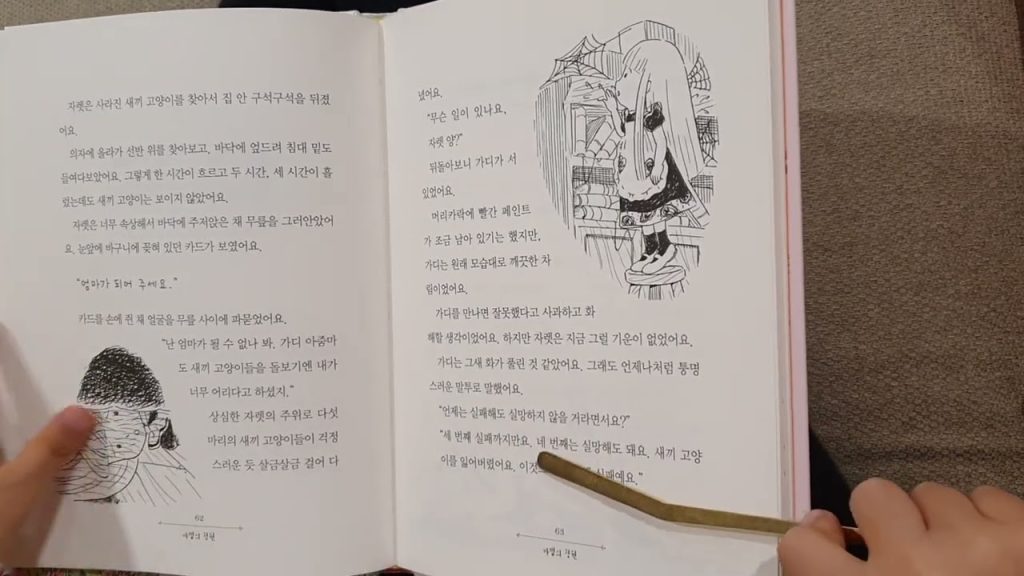 자렛은 사라진 새끼 고양이를 찾아서 집 안 구석구석을 뒤졌
어요.
의자에 올라가 선반 위를 찾아보고, 바닥에 엎드려 침대 밑도
들여다보았어요. 그렇게 한 시간이 흐르고 두 시간, 세 시간이 흘
렀는데도 새끼 고양이는 보이지 않았어요.
자렛은 너무 속상해서 바닥에 주저앉은 채 무릎을 그러안았어
요. 눈앞에 바구니에 꽂혀 있던 카드가 보였어요.
"엄마가 되어 주세요."
카드를 손에 쥔 채 얼굴을 무릎 사이에 파묻었어요.
"난 엄마가 될 수 없나 봐. 가디 아줌마
도 새끼 고양이들을 돌보기엔 내가
너무 어리다고 하셨지."
상심한 자렛의 주위로 다섯
마리의 새끼 고양이들이 걱정
스러운 듯 살금살금 걸어 다
62
마법의 정원
녔어요.
"무슨 일이 있나요,
자렛 양?"
뒤돌아보니 가디가 서
있었어요.
머리카락에 빨간 페인트
가 조금 남아 있기는 했지만,
가디는 원래 모습대로 깨끗한 차
림이었어요.
가디를 만나면 잘못했다고 사과하고 화
해할 생각이었어요. 하지만 자렛은 지금 그럴 기운이 없었어요.
가디는 그새 화가 풀린 것 같았어요. 그래도 언제나처럼 퉁명
스러운 말투로 말했어요.
"언제는 실패해도 실망하지 않을 거라면서요?"
"세 번째 실패까지만요. 네 번째는 실망해도 돼요. 새끼 고양
이를 잃어버렸어요. 실패예요."
63
마법의 정원